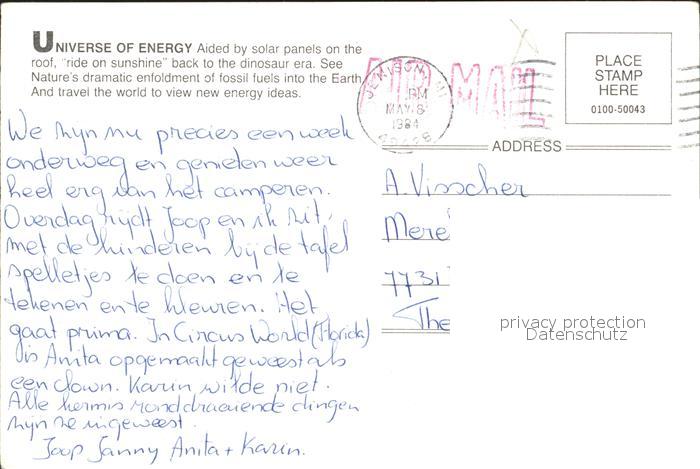 UNIVERSE OF ENERGY Aided by solar panels on the
roof, "ride on sunshine" back to the dinosaur era. See
Nature's dramatic enfoldment of fossil fuels into the Earth.
And travel the world to view new energy ideas.
AIR MAIL
JENISON, MI
PM
MAY 8
1984
PLACE
STAMP
HERE
0100-50043
ADDRESS
We zijn nu precies een week
onderweg en genieten weer
heel erg van het camperen.
Overdag rijdt Joop en ik zit
met de kinderen bij de tafel
spelletjes te doen en te
tekenen en te kleuren. Het
gaat prima. In Circus World (Florida)
is Anita opgemaakt geweest als
een clown. Karin wilde niet.
Alle kermis ronddraaiende dingen
zijn ze in geweest.
Joop Janny Anita + Karin.
A. Visscher
Mere
7731
The
privacy protection
Datenschutz